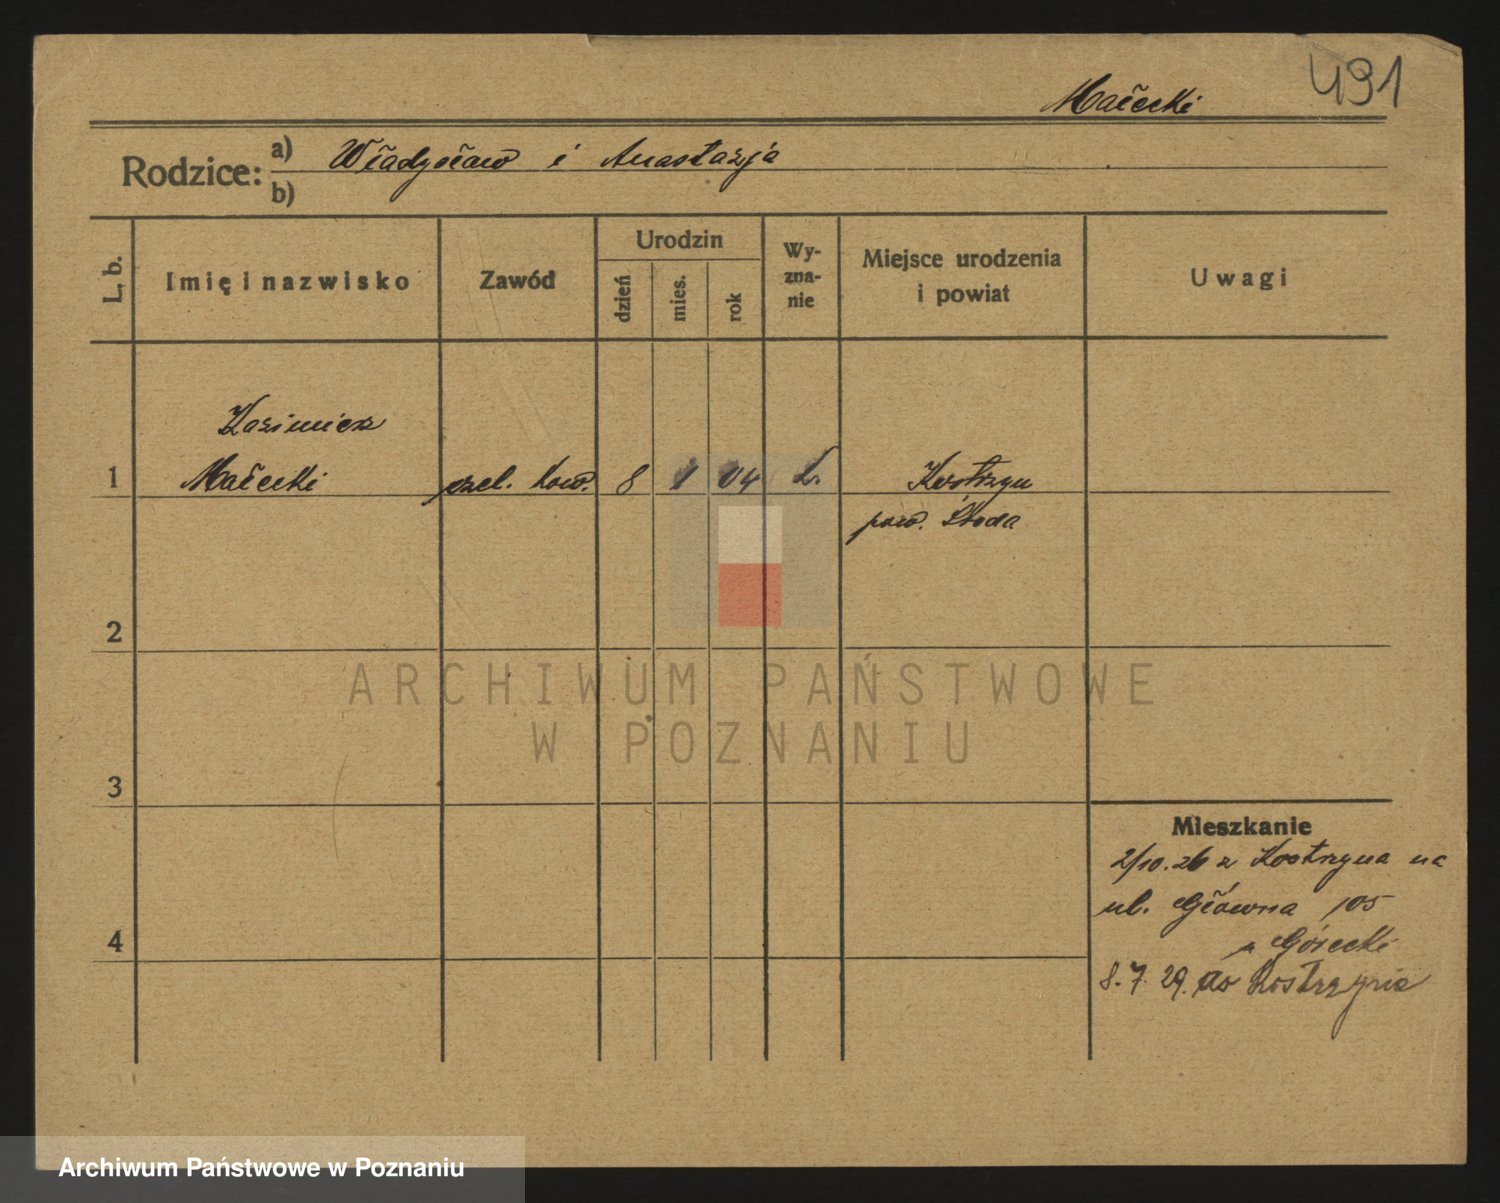 491
Małecki
Rodzice: a) Władysław i Anastazja
b)
L. b.
Imię i nazwisko
Zawód
Urodzin
dzień
mies.
rok
Wy-
zna-
nie
Miejsce urodzenia
i powiat
Uwagi
Kazimierz
1 Małecki czel. kow. 8 1 04 k. Kostrzyn
pow. Środa
2
3
4
ARCHIWUM PAŃSTWOWE
W POZNANIU
Mieszkanie
2/10.26 z Kostrzyna na
ul. Główna 105
u Górecki
8.7.29. do Kostrzynia
Archiwum Państwowe w Poznaniu